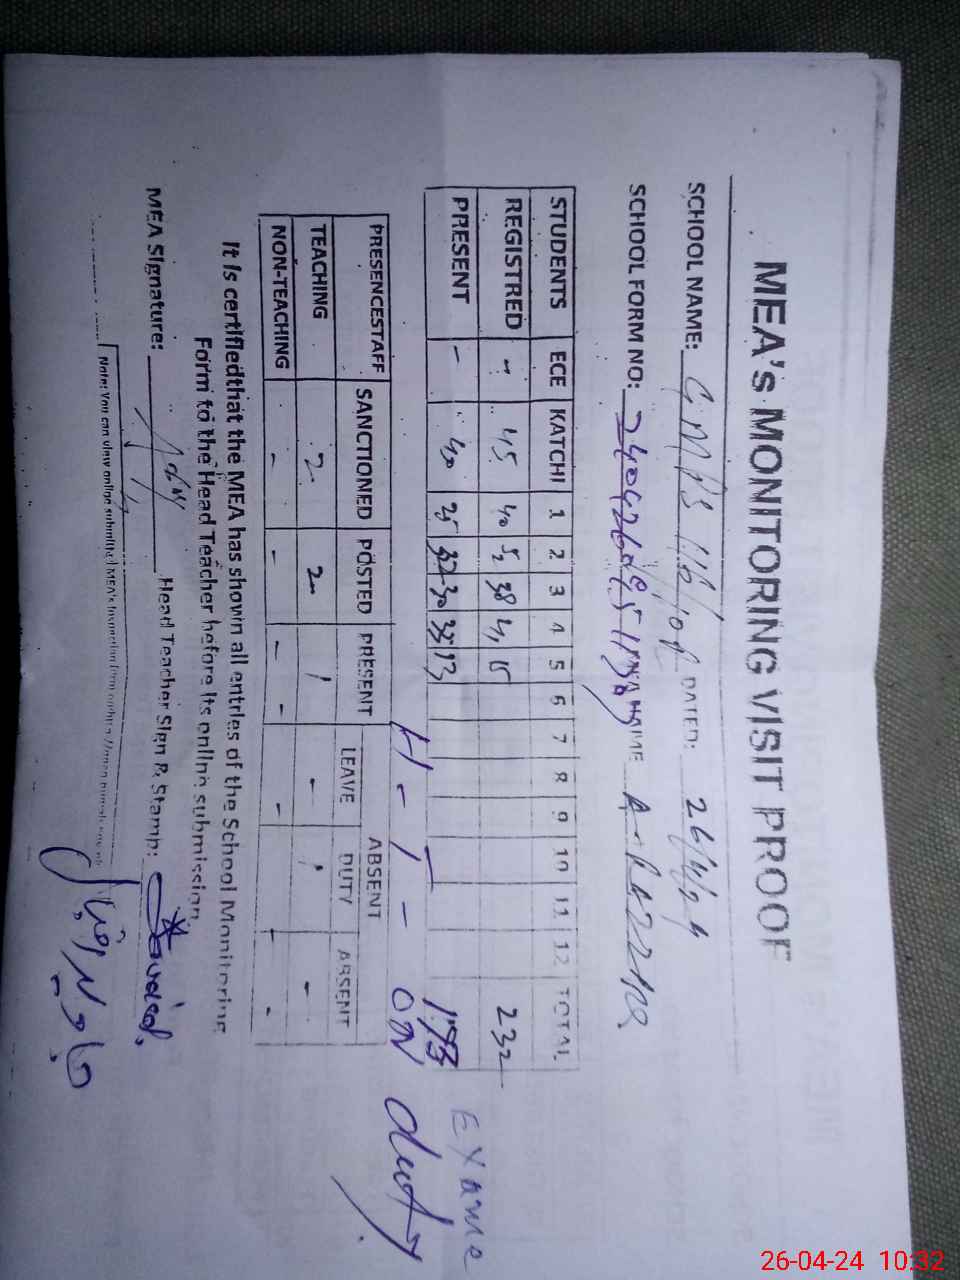 MEA's MONITORING VISIT PROOF
SCHOOL NAME: DATED: 26/4/24
SCHOOL FORM NO: NAME
STUDENTS ECE KATCHI 1 2 3 4 5 6 7 8 9 10 11 12 TOTAL
REGISTRED - 45 40 52 38 15 232
PRESENT - 40 25 32 30 33 13 173
Exame
H - T - ON duty
PRESENCESTAFF SANCTIONED POSTED PRESENT ABSENT
LEAVE DUTY ABSENT
TEACHING 2 2 1 - 1 -
NON-TEACHING - - - - - -
It is certifiedthat the MEA has shown all entries of the School Monitoring
Form to the Head Teacher before its online submission.
MEA Signature: Head Teacher Sign & Stamp:
Note: You can view online submitted MEA's Inspection form
26-04-24 10:32